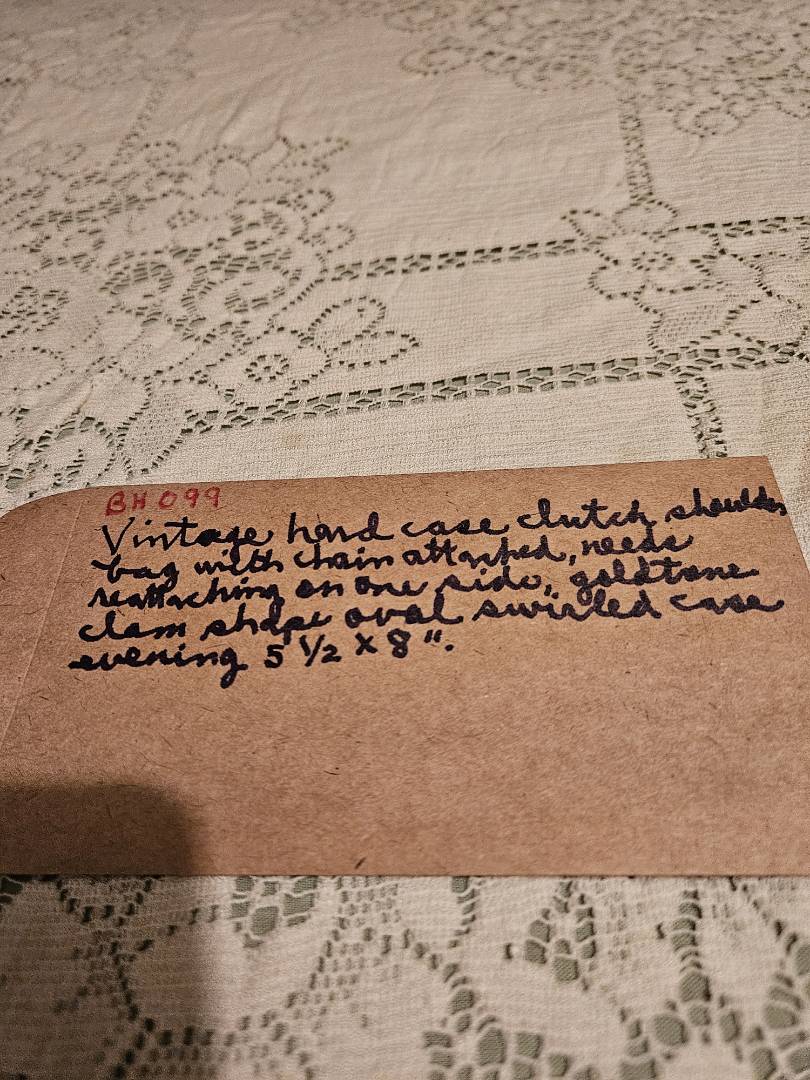 BH099
Vintage hard case clutch shoulder
bag with chain attached, needs
reattaching on one side, goldtone
clam shape oval swirled case
evening 5 1/2 x 8".